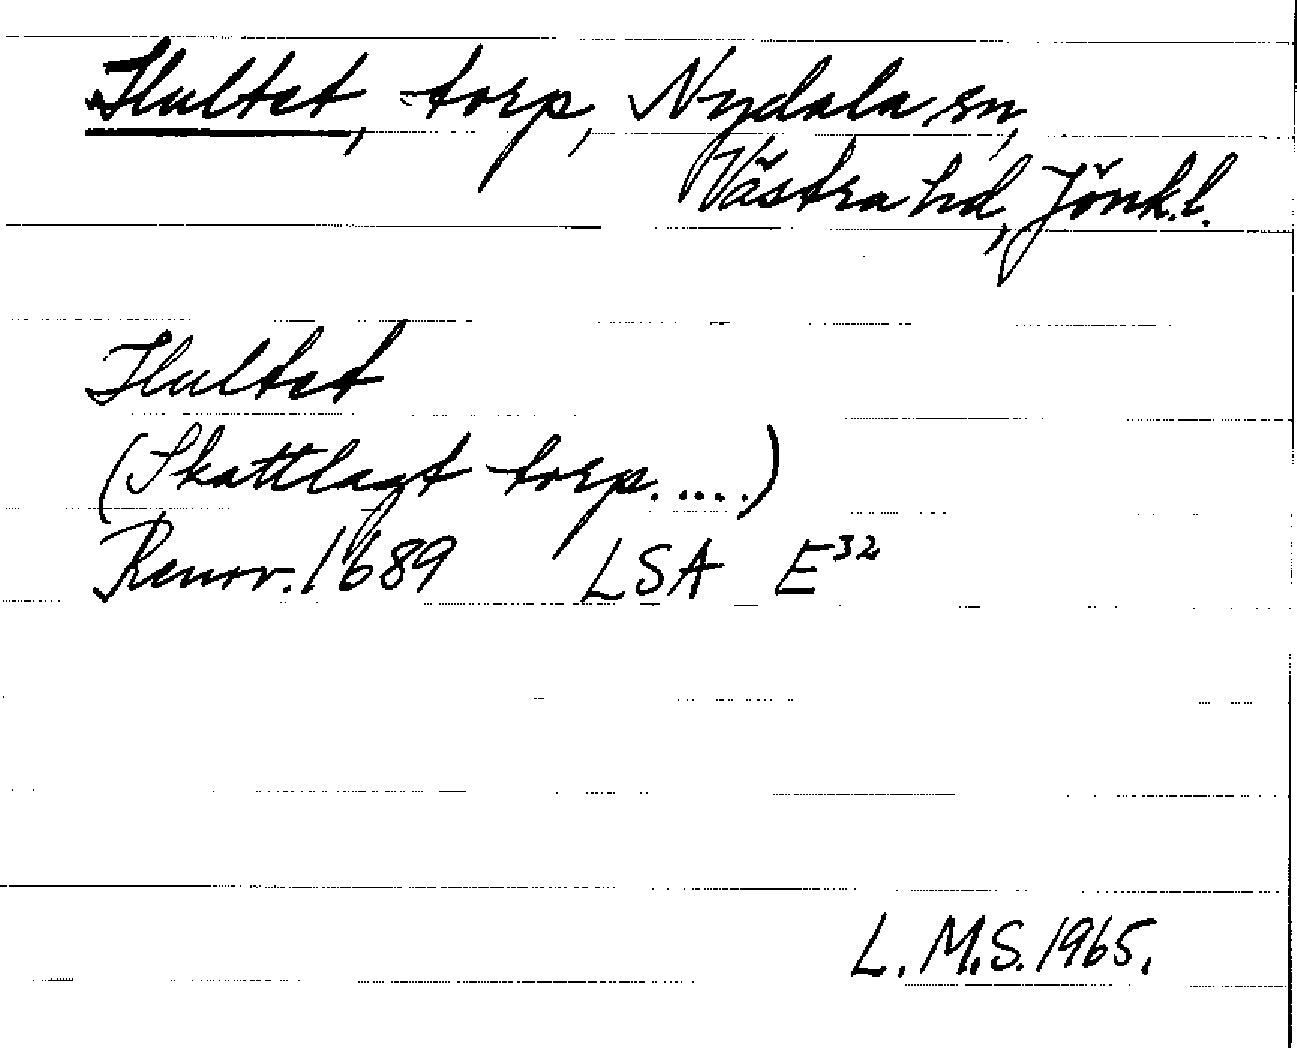 Hultet, torp, Nydala sn,
Västra hd, Jönk.l.
Hultet
(Skattlagt torp.....)
Renov. 1689 LSA E32
L.M.S. 1965.